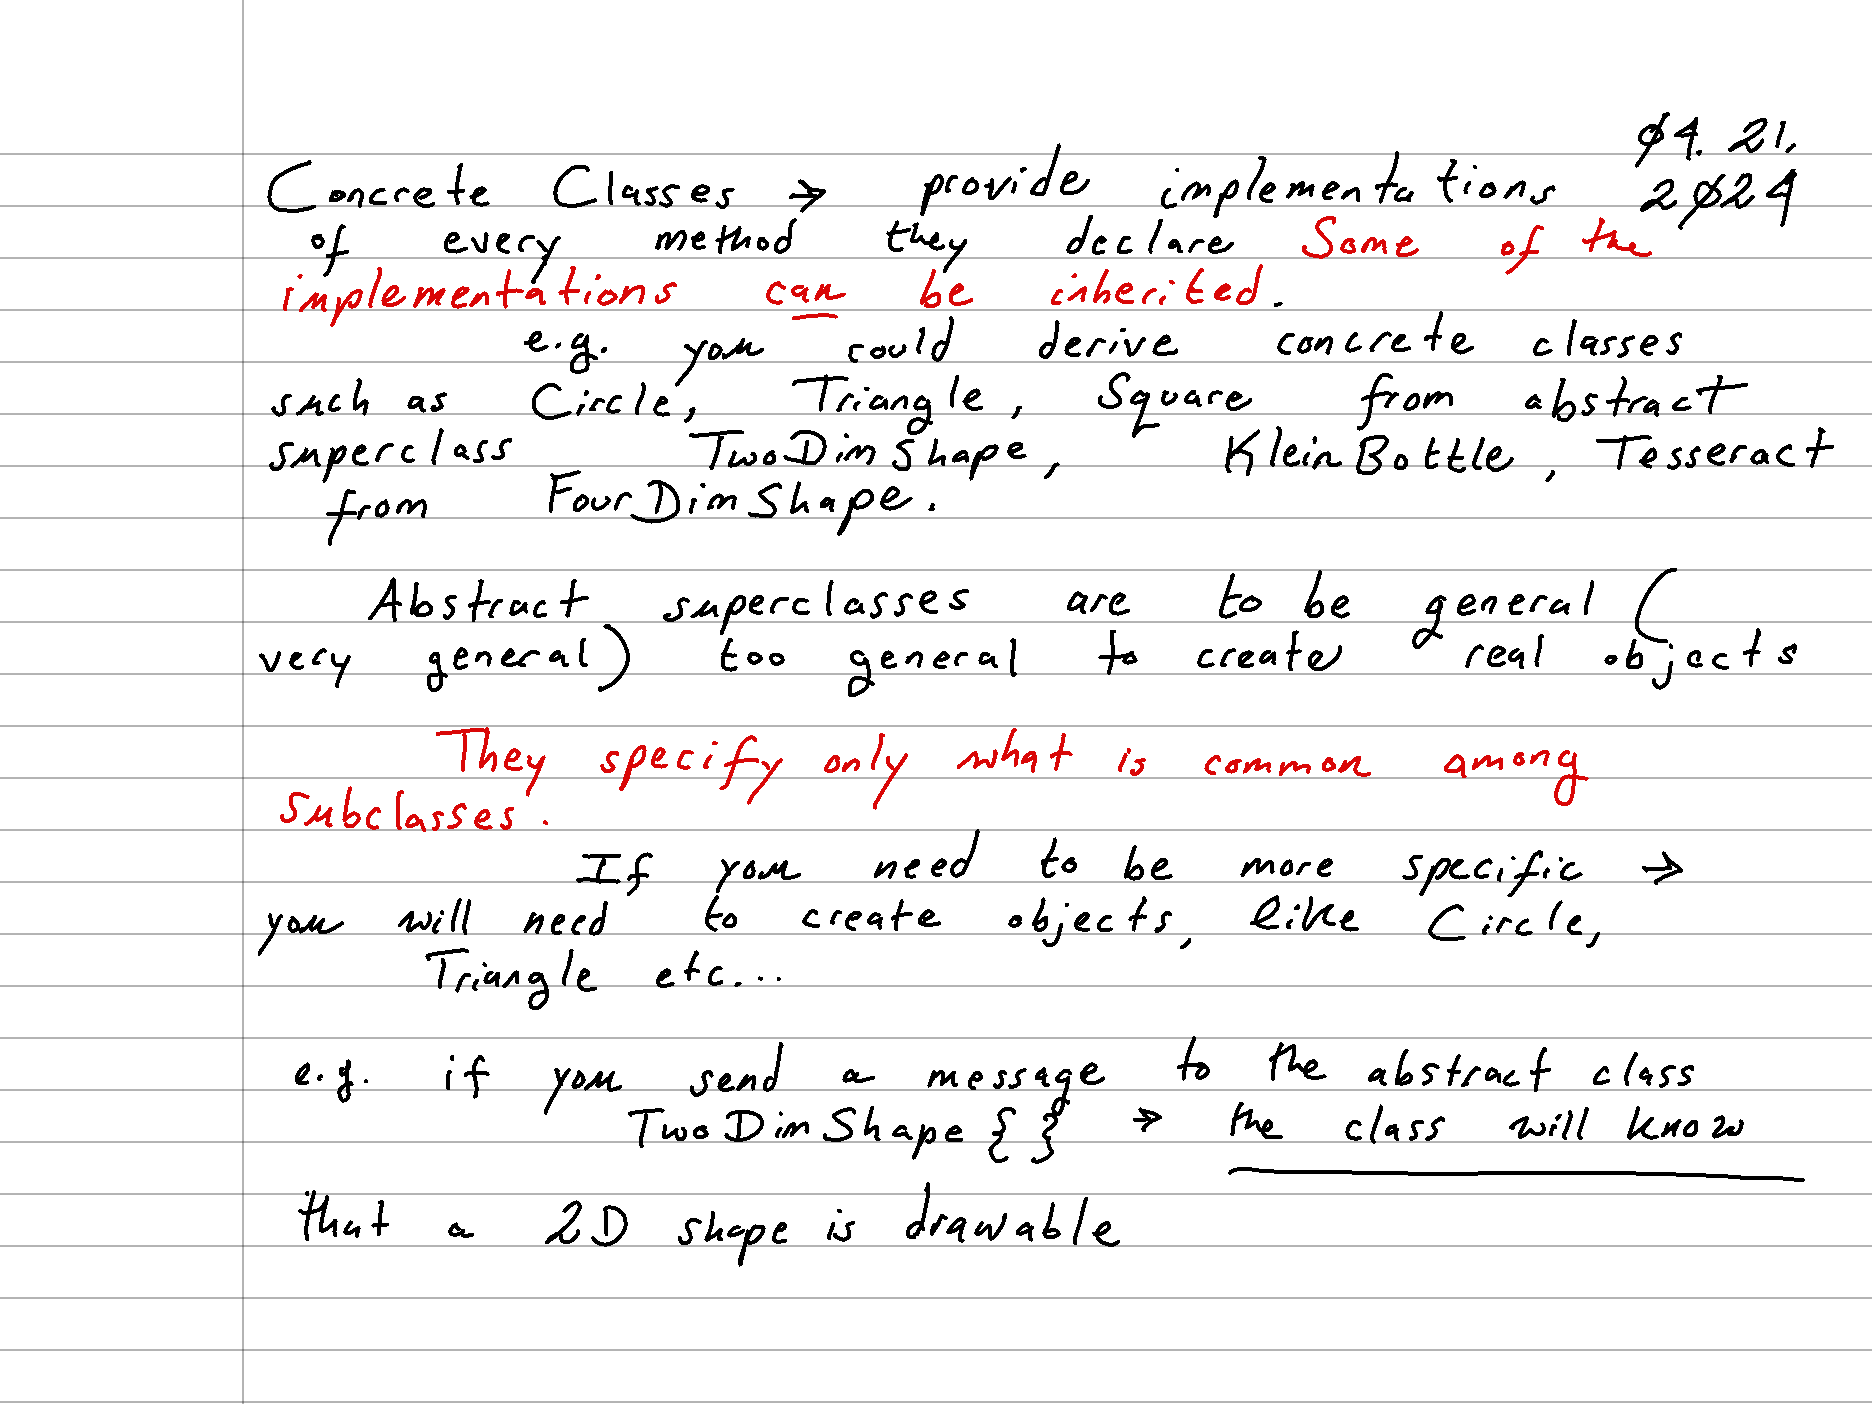 Ø4. 21.
2Ø24
Concrete Classes → provide implementations
of every method they declare Some of the
implementations can be inherited.
e.g. you could derive concrete classes
such as Circle, Triangle, Square from abstract
superclass TwoDimShape, KleinBottle, Tesseract
from FourDimShape.
Abstract superclasses are to be general (
very general) too general to create real objects
They specify only what is common among
subclasses.
If you need to be more specific →
you will need to create objects, like Circle,
Triangle etc...
e.g. if you send a message to the abstract class
TwoDimShape { } → the class will know
that a 2D shape is drawable